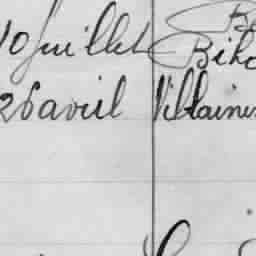 10 Juillet Biho
26 avril Villaines